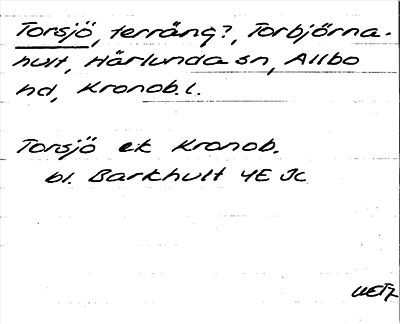 Torsjö, terräng?, Torbjörna-
hult, Härlunda sn, Allbo
hd, Kronob. l.
Torsjö ek Kronob.
bl. Barkhult 4E Jc